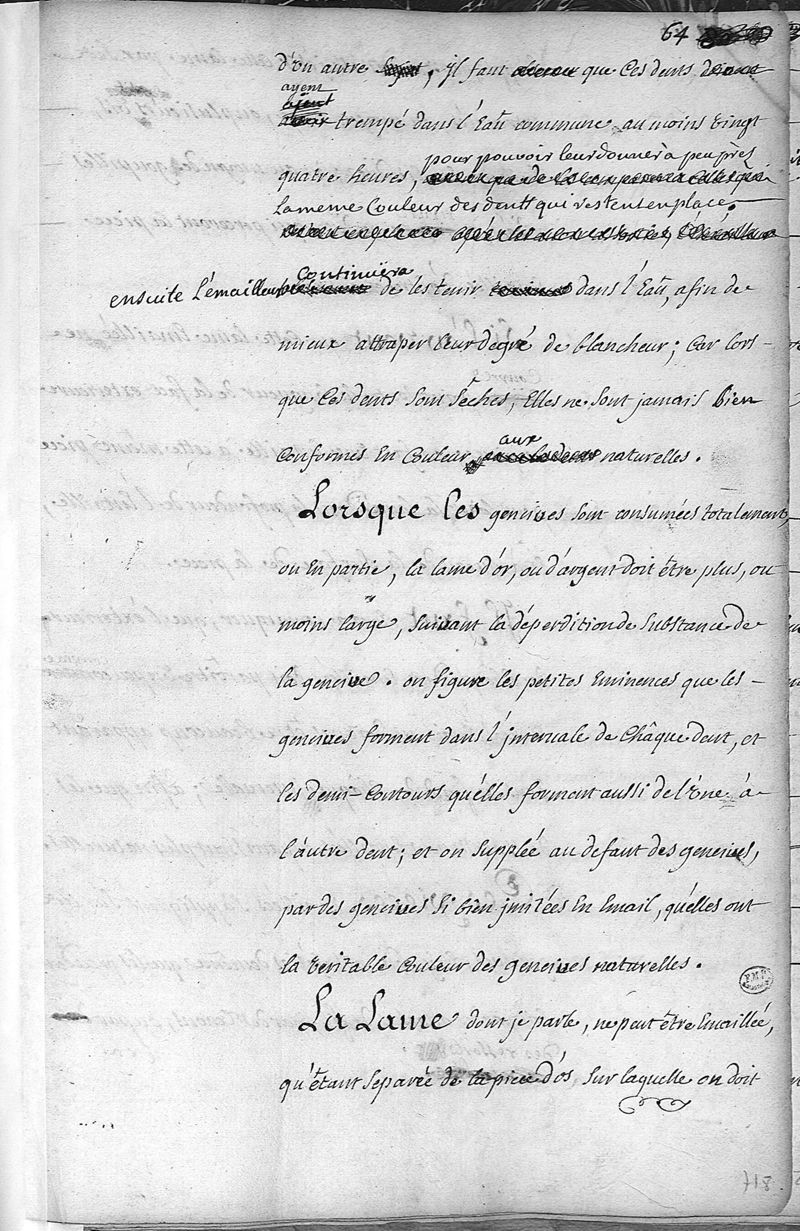 64
d'un autre sujet, il faut que ces dents
ayent
trempé dans l'Eau commune au moins vingt
pour pouvoir leur donner à peu près
quatre heures,
la meme Couleur des dents qui restent en place.
continuëra
ensuite l'émailleur de les tenir dans l'Eau, afin de
mieux attraper leur degré de blancheur; Car lors-
que ces dents sont séches, Elles ne sont jamais bien
aux
conformes En Couleur naturelles.
Lorsque les gencives sont consumées totalement,
ou En partie, la lame d'or, ou d'argent doit être plus, ou
moins large, suivant la déperdition de substance de
la gencive. on figure les petites Eminences que les-
gencives forment dans l'jntervale de Châque dent, et
les demi-Contours qu'elles forment aussi de l'une à-
l'autre dent; et on supplée au defaut des gencives,
par des gencives si bien jmitées En Email, qu'elles ont
la veritable Couleur des gencives naturelles.
La Lame dont je parle, ne peut être Emaillée,
qu'êtant separée de la piece d'os, sur laquelle on doit
718